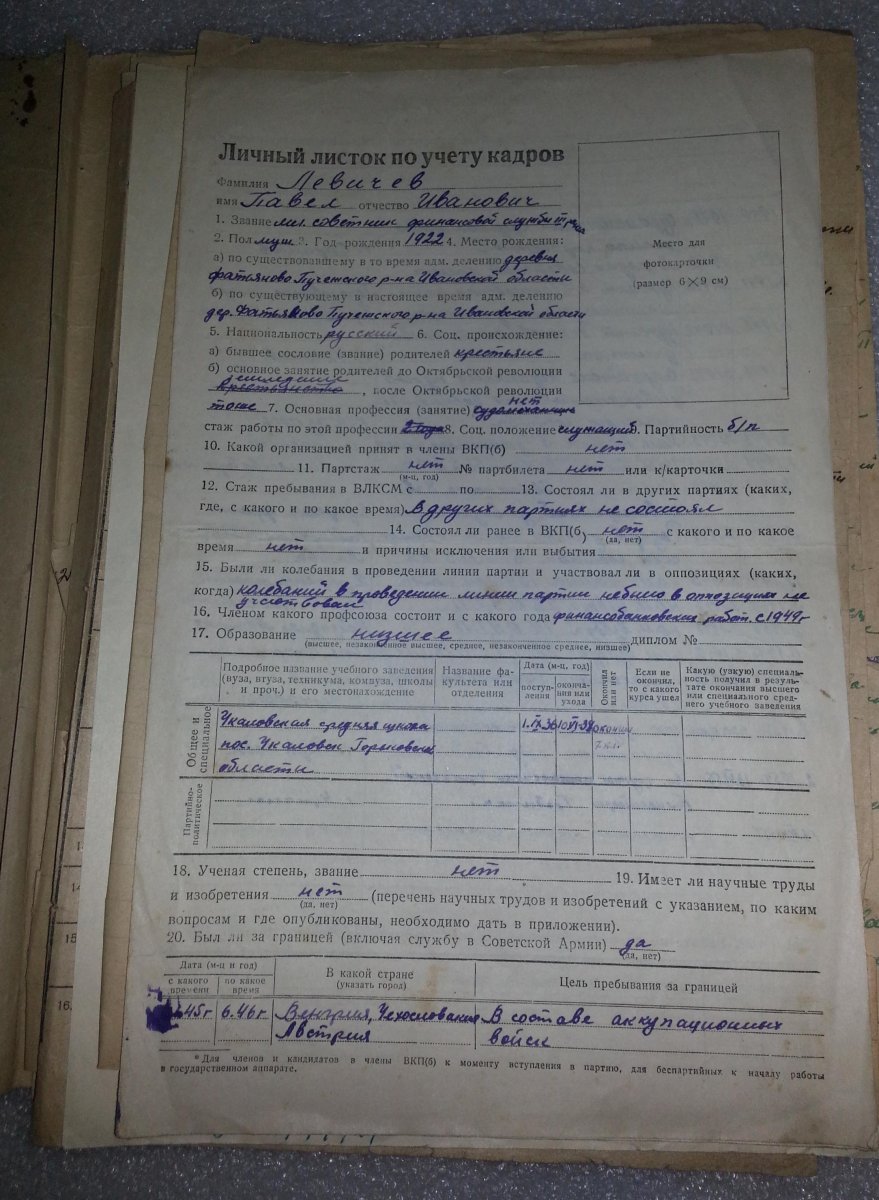 Личный листок по учету кадров
Фамилия Левичев
имя Павел отчество Иванович
Место для
фотокарточки
(размер 6×9 см)
1. Звание мл. советник финансовой службы III ранга
2. Пол муж 3. Год рождения 1922 4. Место рождения:
а) по существовавшему в то время адм. делению деревня
Фатьяново Пучежского р-на Ивановской области
б) по существующему в настоящее время адм. делению
дер. Фатьяново Пучежского р-на Ивановской области
5. Национальность русский 6. Соц. происхождение:
а) бывшее сословие (звание) родителей крестьяне
б) основное занятие родителей до Октябрьской революции
земледелие
крестьянство, после Октябрьской революции
нет
тоже 7. Основная профессия (занятие)
стаж работы по этой профессии 8. Соц. положение служащий 9. Партийность б/п
10. Какой организацией принят в члены ВКП(б) нет
11. Партстаж нет № партбилета нет или к/карточки
(м-ц, год)
12. Стаж пребывания в ВЛКСМ с по 13. Состоял ли в других партиях (каких,
где, с какого и по какое время) В других партиях не состоял
14. Состоял ли ранее в ВКП(б) нет с какого и по какое
(да, нет)
время нет и причины исключения или выбытия
15. Были ли колебания в проведении линии партии и участвовал ли в оппозициях (каких,
когда) колебаний в проведении линии партии небыло в оппозициях не
участвовал
16. Членом какого профсоюза состоит и с какого года финансобанковских работ. с 1949 г
17. Образование низшее диплом №
(высшее, незаконченное высшее, среднее, незаконченное среднее, низшее)
Подробное название учебного заведения (вуза, втуза, техникума, комвуза, школы и проч.) и его местонахождение
Название факультета или отделения
Дата (м-ц, год)
поступления
окончания или ухода
Окончил или нет
Если не окончил, то с какого курса ушел
Какую (узкую) специальность получил в результате окончания высшего или специального среднего учебного заведения
Общее и специальное
Чкаловская средняя школа 1.IX.36 10.VI.38 окончил
пос. Чкаловск Горьковской 7 кл.
области
Партийно-политическое
18. Ученая степень, звание нет 19. Имеет ли научные труды
и изобретения нет (перечень научных трудов и изобретений с указанием, по каким
(да, нет)
вопросам и где опубликованы, необходимо дать в приложении).
20. Был ли за границей (включая службу в Советской Армии) да
(да, нет)
Дата (м-ц и год)
с какого времени
по какое время
В какой стране
(указать город)
Цель пребывания за границей
45 г 6.46 г Венгрия, Чехословакия В составе аккупационных
Австрия войск
* Для членов и кандидатов в члены ВКП(б) к моменту вступления в партию, для беспартийных к началу работы
в государственном аппарате.